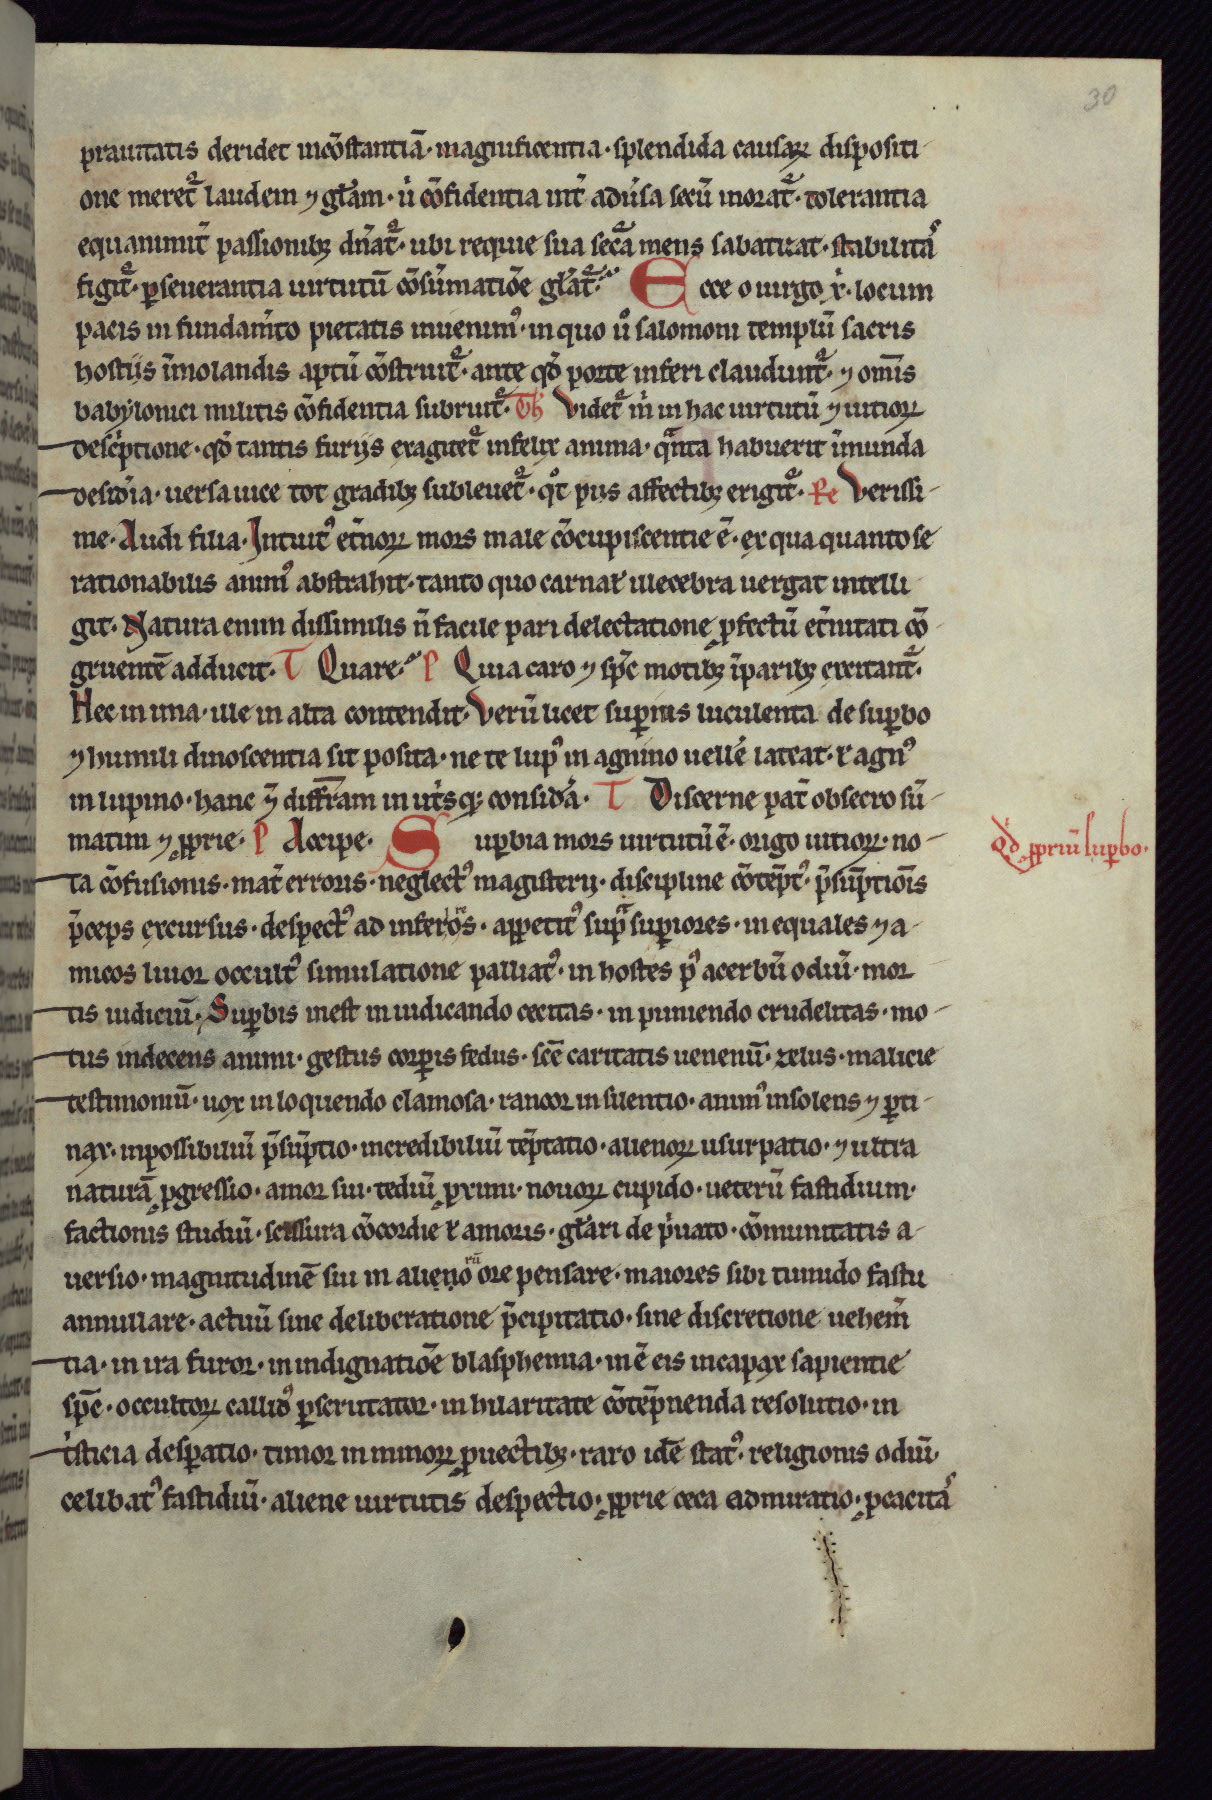 30
prauitatis deridet incōstantiā· magnificentia· splendida causaꝝ dispositi-
one meret᷑ laudem ⁊ gl̄am· ū cōfidentia int̄ adūsa secū morat᷑· tolerantia
equanimit̄ passionibꝫ dn̄at᷑· ubi requie sua secā mens sabatizat· stabilitaˢ
figit᷑· ꝑseuerantia uirtutū cōsūmatiōe gl̄at᷑· Ecce o uirgo x̄· locum
pacis in fundam̄to pietatis inuenimꝰ· in quo uͦ salomoni templū sacris
hostijs īmolandis aptū cōstruit᷑· ante qd̄ porte inferi claudunt᷑· ⁊ om̄is
babylonici militis cōfidentia subruit᷑· Th Videt᷑ m̄ in hac uirtutū ⁊ uitioꝝ
descⁱptione· qd̄ tantis furijs exagitet᷑ infelix anima· qᵃnta habuerit īmunda
desid̄ia· uersa uice tot gradibꝫ subleuet᷑· qͦt piis affectibꝫ erigit᷑· Pe Verissi-
me· Audi filia· Intuitꝰ et̄noꝝ mors male cōcupiscentie ē· ex qua quanto se
rationabilis animꝰ abstrahit· tanto quo carnał illecebra uergat intelli-
git· Natura enim dissimilis n̄ facile pari delectatione ꝓfectū et̄nitati cō-
gruentē adducit· T Quare· P Quia caro ⁊ sp̄c motibꝫ īparibꝫ excitant᷑·
Hec in ima· ille in alta contendit· Verū licet suꝑius luculenta de suꝑbo
⁊ humili dinoscentia sit posita· ne te lupꝰ in agnino uelle᷑ lateat· ⁊ agnꝰ
in lupino· hanc ⁊̄ diffr̄am in ut̄sqꝫ consid̄a· T Discerne pat̄ obsecro sū-
matim ⁊ ꝓprie· P Accipe· Suꝑbia mors uirtutū ē· origo uitioꝝ· no-
ta cōfusionis· mat̄ erroris· neglectꝰ magisterij· discipline cōtēptꝰ· p̄sūptiōis
p̄ceps excursus· despectꝰ ad inferos· appetitꝰ supᵃ suꝑiores· in equales ⁊ a-
micos liuor occultꝰ simulatione palliatꝰ· in hostes pͥ acerbū odiū· mor-
tis iudiciū· Suꝑbis inest in iudicando cecitas· in puniendo crudelitas· mo-
tus indecens animi· gestus corꝑis fedus· scē caritatis uenenū· zelus· malicie
testimoniū· uox in loquendo clamosa· rancor in silentio· animꝰ insolens ⁊ ꝑti-
nax· inpossibiliū p̄sūptio· incredibiliū tēptatio· alienoꝝ usurpatio· ⁊ ultra
naturā ꝓgressio· amor sui· tediū ꝓximi· nouoꝝ cupido· ueterū fastidium·
factionis studiū· scissura cōcordie ⁊ amoris· gl̄ari de pͥuato· cōmunitatis a-
uersio· magnitudinē sui in alieno ore pensare· maiores sibi tumido fastu
annullare· actuū sine deliberatione p̄cipitatio· sine discretione uehem̄-
tia· in ira furor· in indignatiōe blasphemia· inē eis incapax sapientie
sp̄c· occultoꝝ callidꝰ ꝑscrutator· in hilaritate cōtēpnenda resolutio· in
tⁱsticia desꝑatio· timor in minoꝝ ꝓuectibꝫ· raro idē statꝰ· religionis odiū·
celibatꝰ fastidiū· aliene uirtutis despectio· ꝓprie ceca admiratio· ꝓcacitaˢ
qd̄ ꝓpriū suꝑbo·